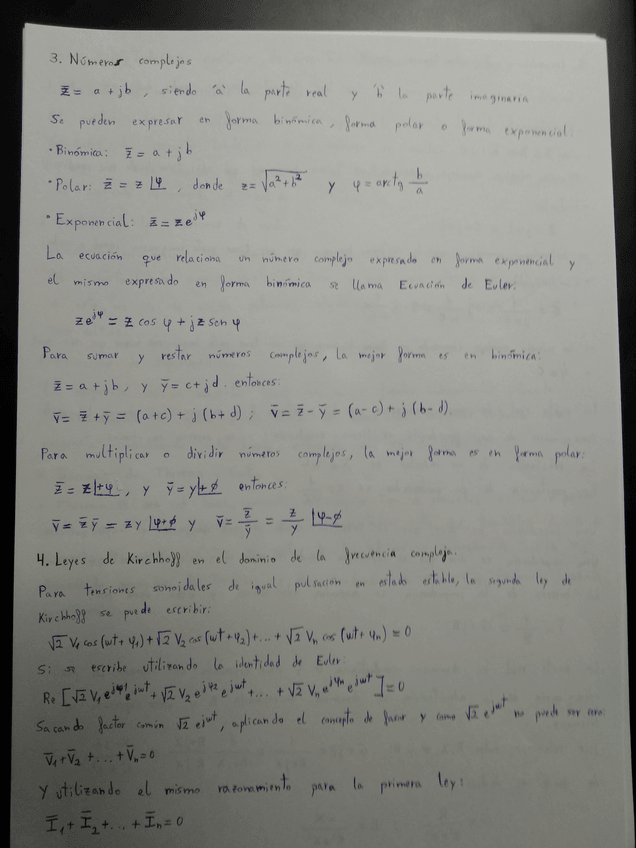 3. Números complejos
z̄ = a + jb , siendo "a" la parte real y "b" la parte imaginaria
Se pueden expresar en forma binómica, forma polar o forma exponencial.
• Binómica: z̄ = a + jb
• Polar: z̄ = z |φ , donde z = √(a² + b²) y φ = arctg b/a
• Exponencial: z̄ = z e^jφ
La ecuación que relaciona un número complejo expresado en forma exponencial y
el mismo expresado en forma binómica se llama Ecuación de Euler:
z e^jφ = z cos φ + j z sen φ
Para sumar y restar números complejos, la mejor forma es en binómica:
z̄ = a + jb, y ȳ = c + jd. entonces:
v̄ = z̄ + ȳ = (a+c) + j (b+d) ; v̄ = z̄ - ȳ = (a-c) + j (b-d).
Para multiplicar o dividir números complejos, la mejor forma es en forma polar:
z̄ = z |+φ , y ȳ = y |+ϕ entonces:
v̄ = z̄ ȳ = z y |φ+ϕ y v̄ = z̄/ȳ = z/y |φ-ϕ
4. Leyes de Kirchhoff en el dominio de la frecuencia compleja.
Para tensiones senoidales de igual pulsación en estado estable, la segunda ley de
Kirchhoff se puede escribir:
√2 V₁ cos (ωt + φ₁) + √2 V₂ cos (ωt + φ₂) + ... + √2 Vn cos (ωt + φn) = 0
Si se escribe utilizando la identidad de Euler:
Re [√2 V₁ e^jφ1 e^jωt + √2 V₂ e^jφ2 e^jωt + ... + √2 Vn e^jφn e^jωt] = 0
Sacando factor común √2 e^jωt, aplicando el concepto de fasor y como √2 e^jωt no puede ser cero:
V̄₁ + V̄₂ + ... + V̄n = 0
Y utilizando el mismo razonamiento para la primera ley:
Ī₁ + Ī₂ + ... + Īn = 0